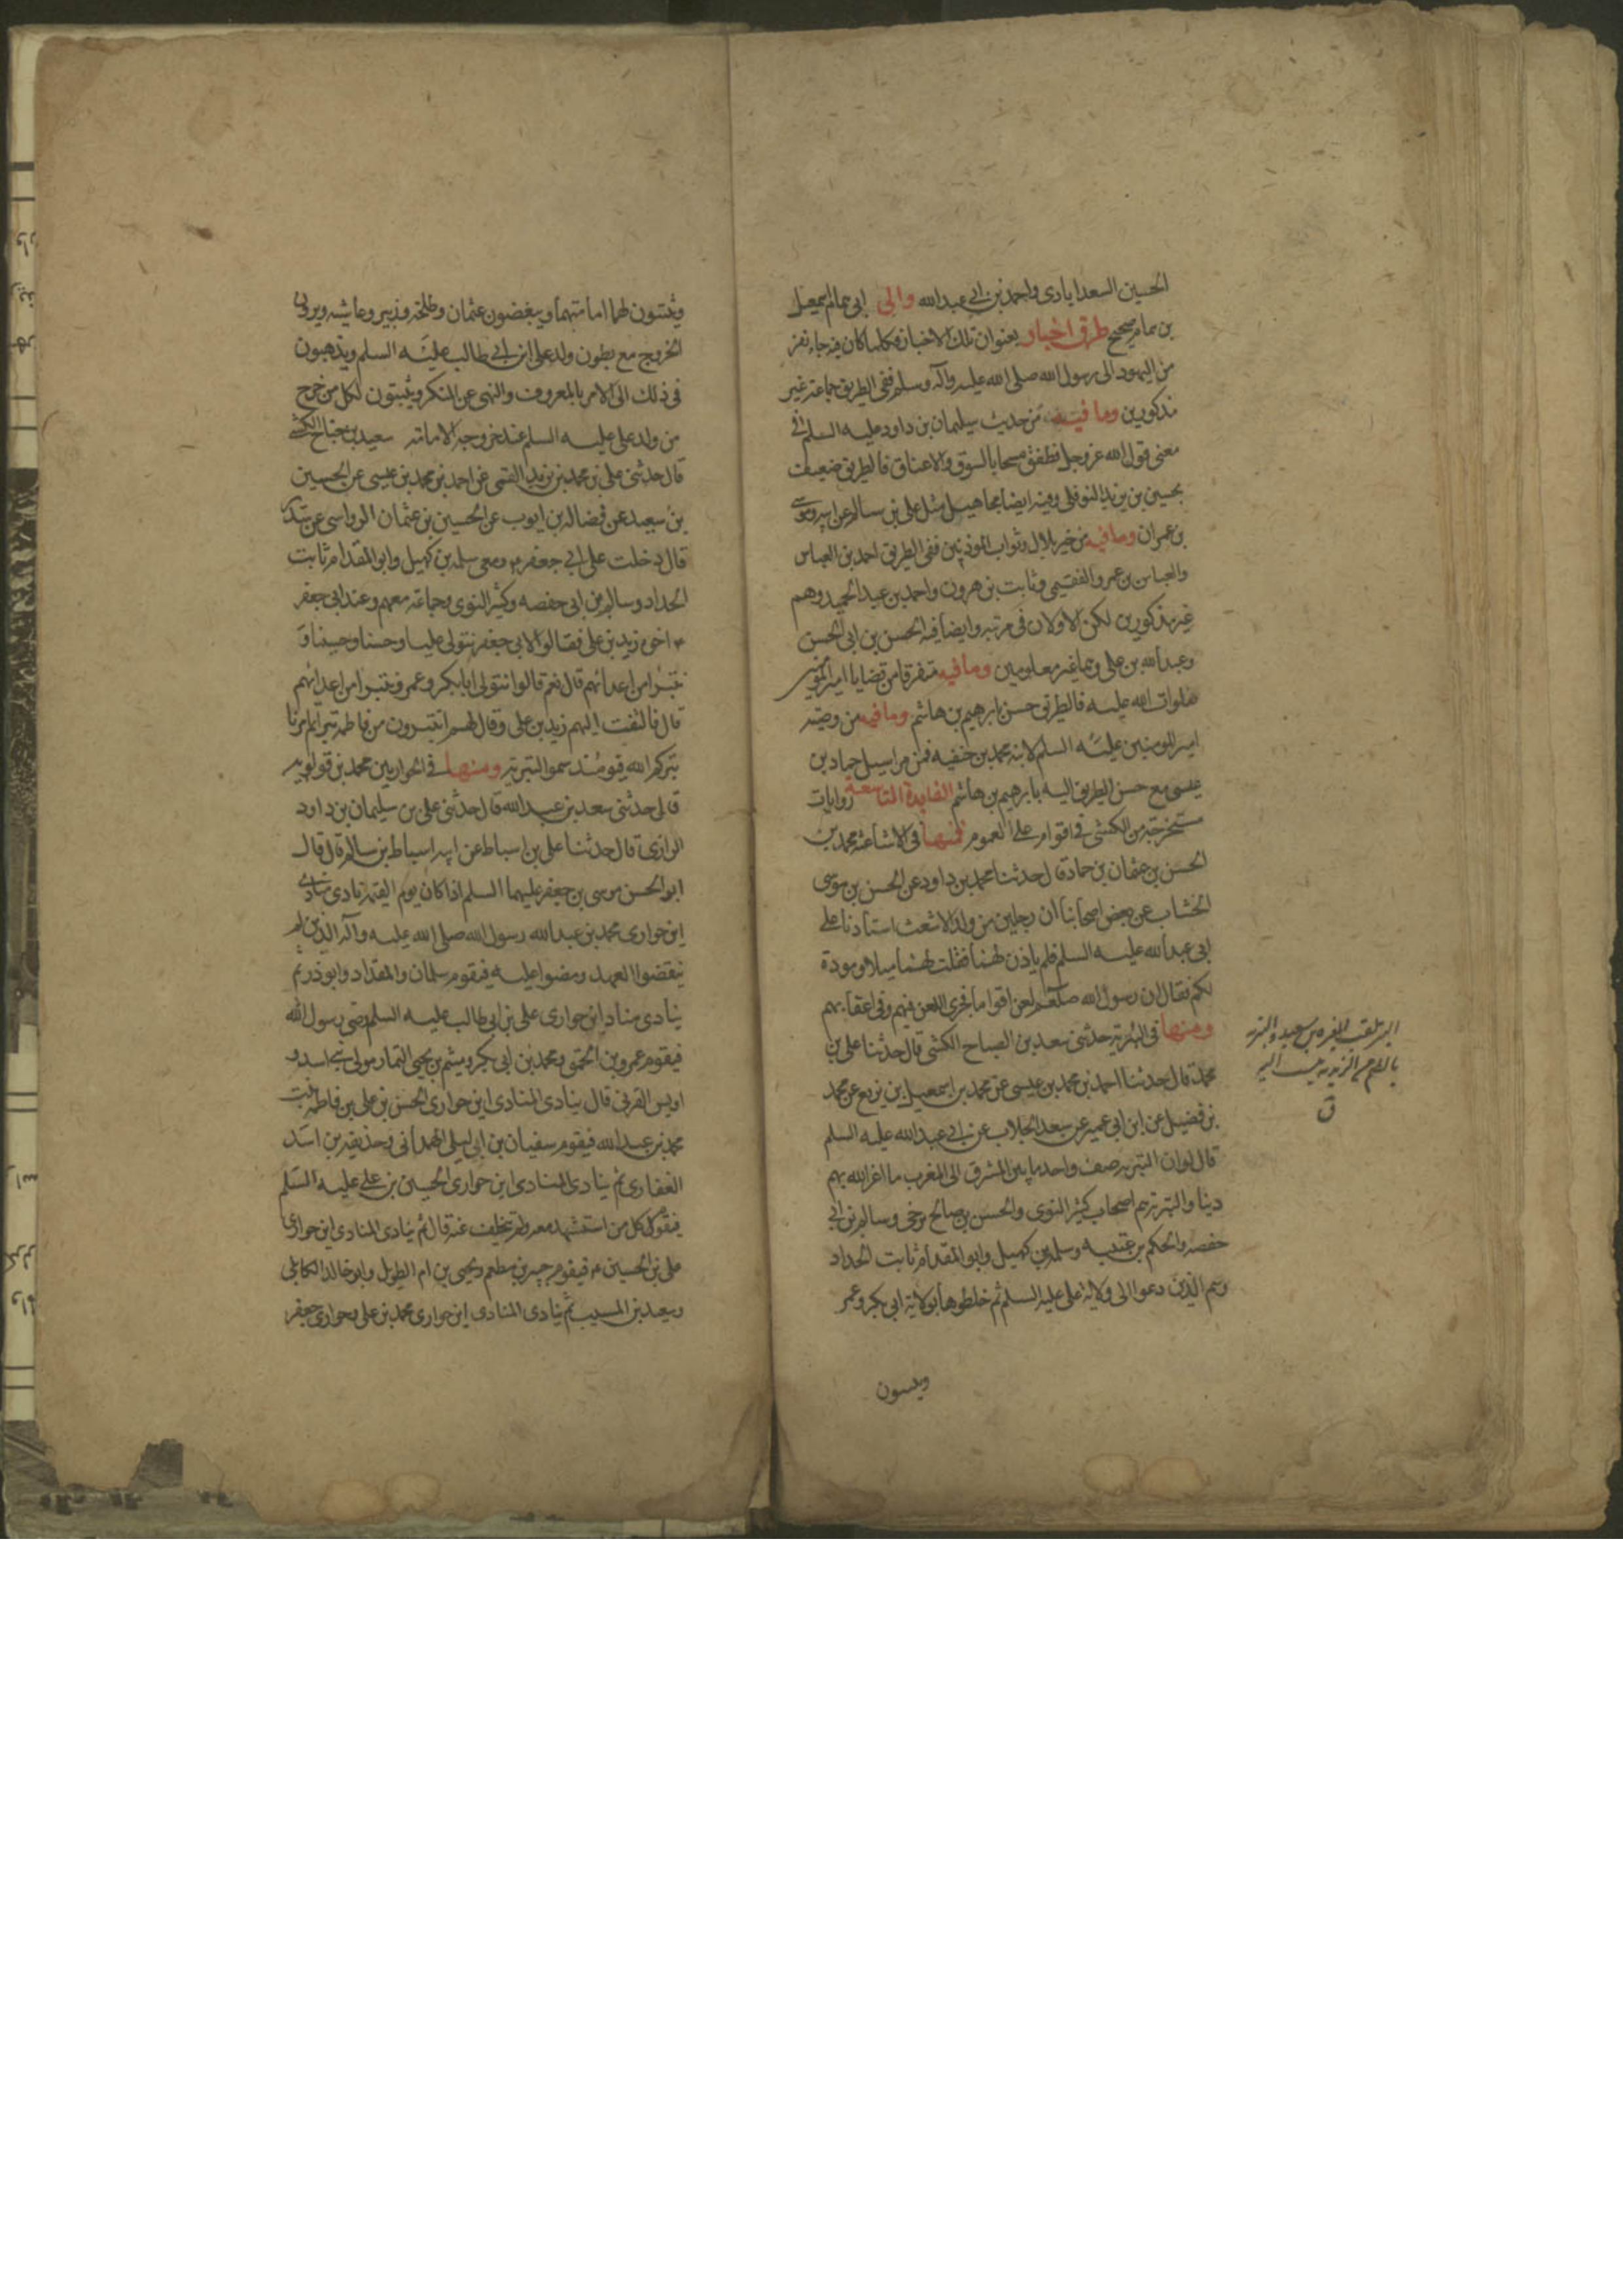 الحسين السعدابادى واحمد بن ابى عبدالله والى ابى همام اسمعيل
بن همام صحيح طرق اخبار بعنوان تلك الاخبار فكلما كان فيه جاء نفر
من اليهود الى رسول الله صلى الله عليه وآله وسلم ففى الطريق جماعة غير
مذكورين وما فيه من حديث سليمان بن داود عليه السلم فى
معنى قول الله عز وجل فطفق مسحا بالسوق والاعناق فالطريق ضعيف
بحسين بن يزيد النوفلى وفيه ايضا مجاهيل مثل على بن سالم عن ابيه وموسى
بن عمران وما فيه من خبر بلال وثواب الموذنين ففى الطريق احمد بن العباس
والعباس بن عمرو الفقيمى وثابت بن هرون واحمد بن عبد الحميد وهم
غير مذكورين لكن الاولان فى مرتبه وايضا فيه الحسن بن ابى الحسن
وعبدالله بن على وهما غير معلومين وما فيه متفرقا من قضايا امير المؤمنين
صلوات الله عليه فالطريق حسن بابرهيم بن هاشم وما فيه من وصيه
امير المومنين عليه السلم لابنه محمد بن حنفيه فمن مراسيل حماد بن
عيسى مع حسن الطريق اليه بابرهيم بن هاشم الفايدة التاسعة روايات
مستخرجة من الكشى فى اقوام على العموم فمنها فى الاشاعثه محمد بن
الحسن بن عثمان بن حماد قال حدثنا محمد بن داود عن الحسن بن موسى
الخشاب عن بعض اصحابنا ان رجلين من ولد الاشعث استاذنا على
ابى عبدالله عليه السلم فلم ياذن لهما فقلت لهما ميلا ومودة
لكم فقال ان رسول الله صلعم لعن اقواما فجرى اللعن فيهم وفى اعقابهم
ومنها فى البتريه حدثنى سعد بن الصباح الكشى قال حدثنا على بن
محمد قال حدثنا احمد بن محمد بن عيسى عن محمد بن اسمعيل بن بزيع عن محمد
بن فضيل عن ابن ابى عمير عن سعد الجلاب عن ابى عبدالله عليه السلم
قال لو ان البتريه صف واحد ما بين المشرق الى المغرب ما اعز الله بهم
دينا والبتريه هم اصحاب كثير النوى والحسن بن صالح بن حى وسالم بن ابى
حفصه والحكم بن عتيبه وسلمه بن كهيل وابو المقدام ثابت الحداد
وهم الذين دعوا الى ولاية على عليه السلم ثم خلطوها بولاية ابى بكر وعمر
ويثبتون
بالضم من الزيديه
ق
ويثبتون لهما امامتهما ويبغضون عثمان وطلحه وزبير وعايشه ويرون
الخروج مع بطون ولد على ابن ابى طالب عليه السلم ويذهبون
فى ذلك الى الامر بالمعروف والنهى عن المنكر ويثبتون لكل من خرج
من ولد على عليه السلم عند خروجه الامامة سعيد بن جناح الكشى
قال حدثنى على بن محمد بن يزيد القمى عن احمد بن محمد بن عيسى عن الحسين
بن سعيد عن فضاله بن ايوب عن الحسين بن عثمان الرواسى عن سدير
قال دخلت على ابى جعفر ع ومعى سلمه بن كهيل وابو المقدام ثابت
الحداد وسالم بن ابى حفصه وكثير النوى وجماعة معهم وعند ابى جعفر
ع اخوه زيد بن على فقالوا لابى جعفر نتولى عليا وحسنا وحسينا و
نتبرا من اعدائهم قال نعم قالوا نتولى ابا بكر وعمر ونتبرا من اعدائهم
قال فالتفت اليهم زيد بن على وقال لهم اتتبرون من فاطمه بترتم امرنا
بتركم الله فيومئذ سموا البتريه ومنها فى الحواريين محمد بن قولويه
قال حدثنى سعد بن عبدالله قال حدثنى على بن سليمان بن داود
الرازى قال حدثنا على بن اسباط عن ابيه اسباط بن سالم قال قال
ابو الحسن موسى بن جعفر عليهما السلم اذا كان يوم القيمه نادى مناد
اين حوارى محمد بن عبدالله رسول الله صلى الله عليه وآله الذين لم
ينقضوا العهد ومضوا عليه فيقوم سلمان والمقداد وابوذر ثم
ينادى مناد اين حوارى على بن ابى طالب عليه السلم وصى رسول الله
فيقوم عمرو بن الحمق ومحمد بن ابى بكر وميثم بن يحيى التمار مولى بنى اسد و
اويس القرنى قال ينادى المنادى اين حوارى الحسن بن على بن فاطمه بنت
محمد بن عبدالله فيقوم سفيان بن ابى ليلى الهمدانى وحذيفه بن اسد
الغفارى ثم ينادى المنادى اين حوارى الحسين بن على عليه السلم
فيقوم كل من استشهد معه ولم يتخلف عنه قال ثم ينادى المنادى اين حوارى
على بن الحسين ع فيقوم جبير بن مطعم ويحيى بن ام الطويل وابو خالد الكابلى
وسعيد بن المسيب ثم ينادى المنادى اين حوارى محمد بن على وحوارى جعفر